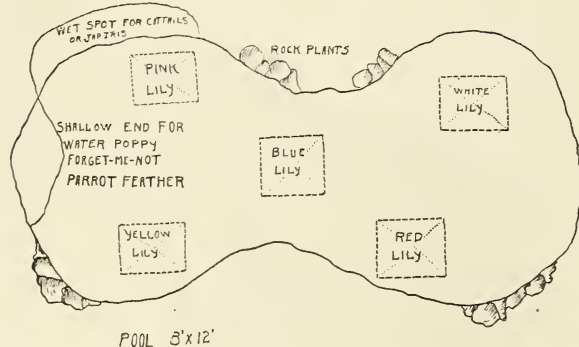 WET SPOT FOR CATTAILS
OR JAP IRIS
ROCK PLANTS
PINK
LILY
WHITE
LILY
SHALLOW END FOR
WATER POPPY
FORGET-ME-NOT
PARROT FEATHER
BLUE
LILY
YELLOW
LILY
RED
LILY
POOL 8'X12'